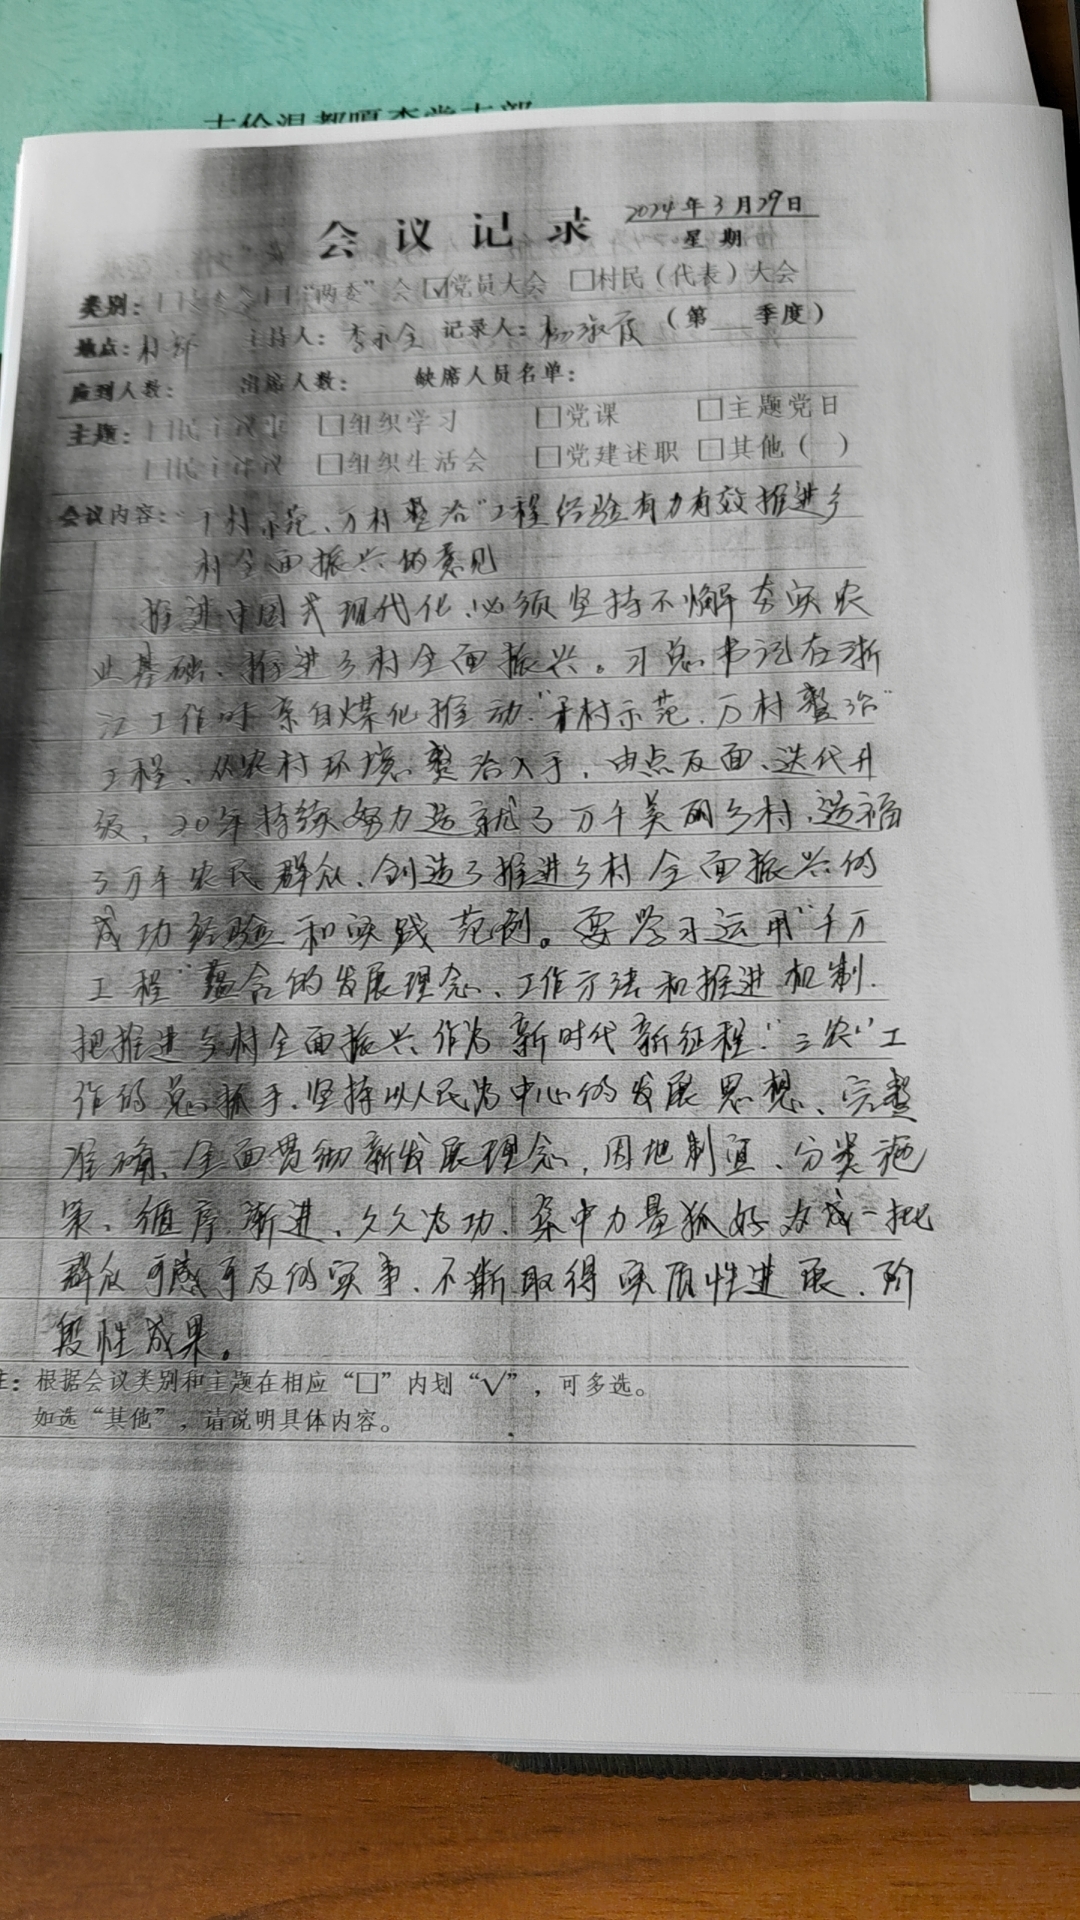 会议记录 2024年3月29日
星期
类别: □ □“两委”会 ☑党员大会 □村民(代表)大会
地点:村部 主持人:李永全 记录人:杨淑霞 (第 季度)
应到人数: 出席人数: 缺席人员名单:
主题: □民主议事 □组织学习 □党课 □主题党日
□民主评议 □组织生活会 □党建述职 □其他( )
会议内容: 千村示范、万村整治”工程经验有力有效推进乡
村全面振兴的意见
推进中国式现代化,必须坚持不懈夯实农
业基础、推进乡村全面振兴。习总书记在浙
江工作时亲自 推动“千村示范、万村整治”
工程、从农村环境整治入手,由点及面、迭代升
级,20年持续努力造就了万千美丽乡村,造福
了万千农民群众,创造了推进乡村全面振兴的
成功经验和实践范例。要学习运用“千万
工程”蕴含的发展理念、工作方法和推进机制.
把推进乡村全面振兴作为新时代新征程“三农”工
作的总抓手,坚持以人民为中心的发展思想、完整
准确、全面贯彻新发展理念,因地制宜、分类施
策、循序渐进、久久为功,集中力量抓好办成一批
群众可感可及的实事、不断取得实质性进展、阶
段性成果。
注:根据会议类别和主题在相应“□”内划“√”,可多选。
如选“其他”,请说明具体内容。